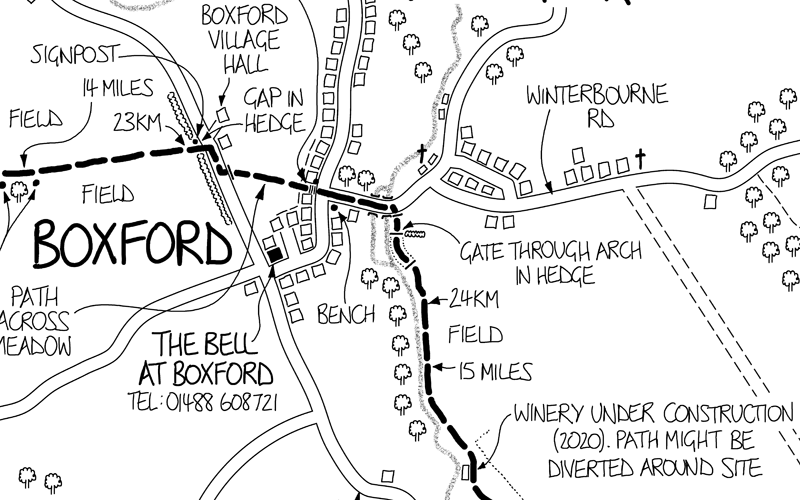 BOXFORD
VILLAGE
HALL
SIGNPOST
14 MILES
GAP IN
HEDGE
FIELD
23KM
WINTERBOURNE
RD
FIELD
BOXFORD
GATE THROUGH ARCH
IN HEDGE
PATH
ACROSS
MEADOW
BENCH
24KM
FIELD
THE BELL
AT BOXFORD
TEL: 01488 608721
15 MILES
WINERY UNDER CONSTRUCTION
(2020). PATH MIGHT BE
DIVERTED AROUND SITE